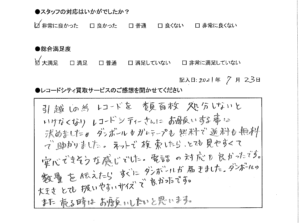 ●スタッフの対応はいかがでしたか？
☑非常に良かった □良かった □普通 □良くない □非常に良くない
●総合満足度
☑大満足 □満足 □普通 □満足していない □非常に満足していない
記入日：2021年 9月 23日
●レコードシティ買取サービスのご感想を聞かせてください
引越しの為 レコードを 数百枚 処分しないと
いけなくなり レコードシティーさんに お願いする事に
決めました。ダンボールもガムテープも無料で送料も無料
で助かりました。ネットで検索したら、とても見やすくて
安心できそうな感じでした。電話の対応も良かったです。
数量を伝えたら すぐに ダンボールが届きました。ダンボールの
大きさ とても 扱いやすいサイズで 良かったです。
また 売る時は お願いしたいと思います。